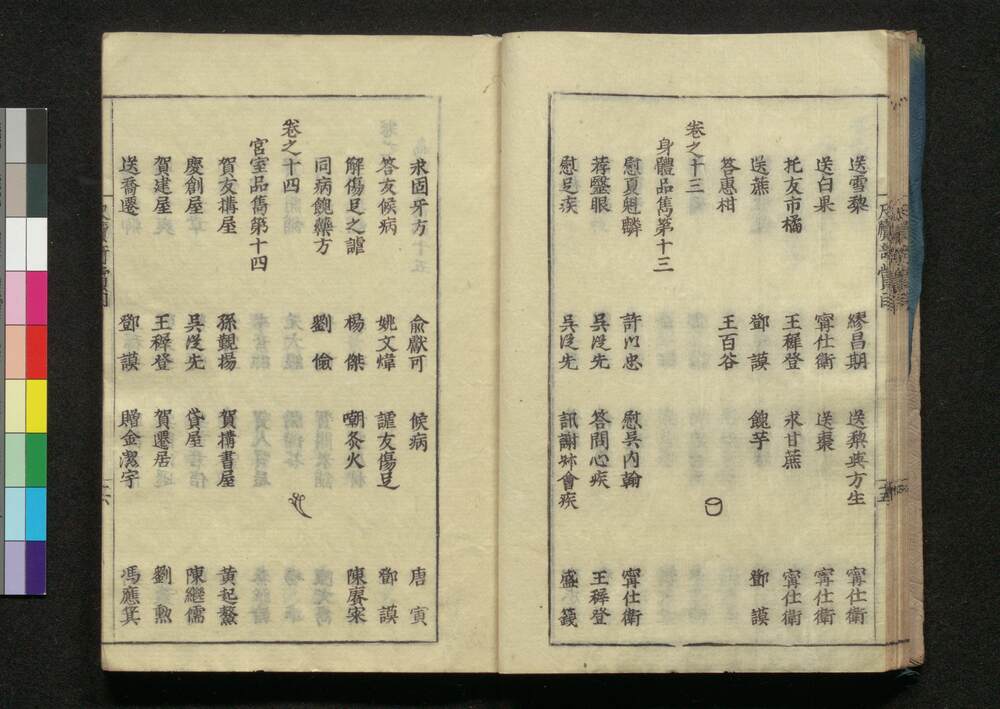 送雪黎 繆昌期 送黎與方生 甯仕衛
送白果 甯仕衛 送棗 甯仕衛
托友市橘 王穉登 求甘蔗 甯仕衛
送蔗 鄧謨 餽芋 鄧謨
答惠柑 王百谷
卷之十三
身體品雋第十三
慰夏魁麟 許以忠 慰吳內翰 甯仕衛
荐醫眼 吳從先 答問心疾 王穉登
慰足疾 吳從先 訊謝公會疾 盛籛
求固牙方 俞獻可 候病 唐寅
答友候病 姚文煒 謔友傷足 鄧謨
解傷足之謔 楊傑 嘲灸火 陳廖寀
同病餽藥方 劉儉
卷之十四
宮室品雋第十四
賀友搆屋 孫觀揚 賀搆書屋 黃起鰲
慶創屋 吳從先 貸屋 陳繼儒
賀建屋 王穉登 賀遷居 劉勲
送喬遷 鄧謨 贈金潔宇 馮應箕